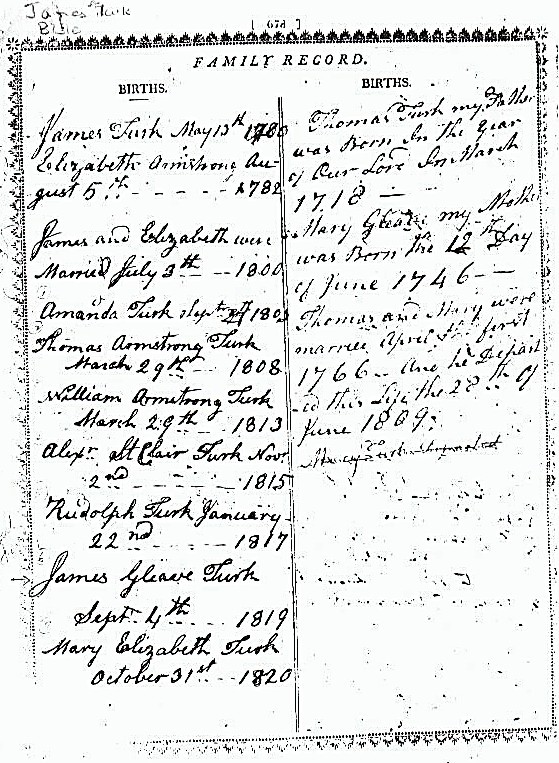 James Turk
Bible
[ 678 ]
FAMILY RECORD.
BIRTHS.
James Turk May 13th 1780
Elizabeth Armstrong Au-
gust 5th - - - - - 1782
James and Elizabeth were
Married July 3th - - 1800
Amanda Turk Sept 180
Thomas Armstrong Turk
March 29th - - 1808
William Armstrong Turk
March 29th - - 1813
Alexr. StClair Turk Novr
2nd - - - - - 1815
Rudolph Turk January
22nd - - - - 1817
James Gleave Turk
Sept. 4th - - - 1819
Mary Elizabeth Turk
October 31st - - 1820
BIRTHS.
Thomas Turk my Father
was Born In the Year
of Our Lord In March
1718 —
Mary Gleave my Mother
was Born the 12th Day
of June 1746 - —
Thomas and Mary were
married April the first
1766 - And he Depart
ed this Life the 28th of
June 1809.
Mary Turk departed